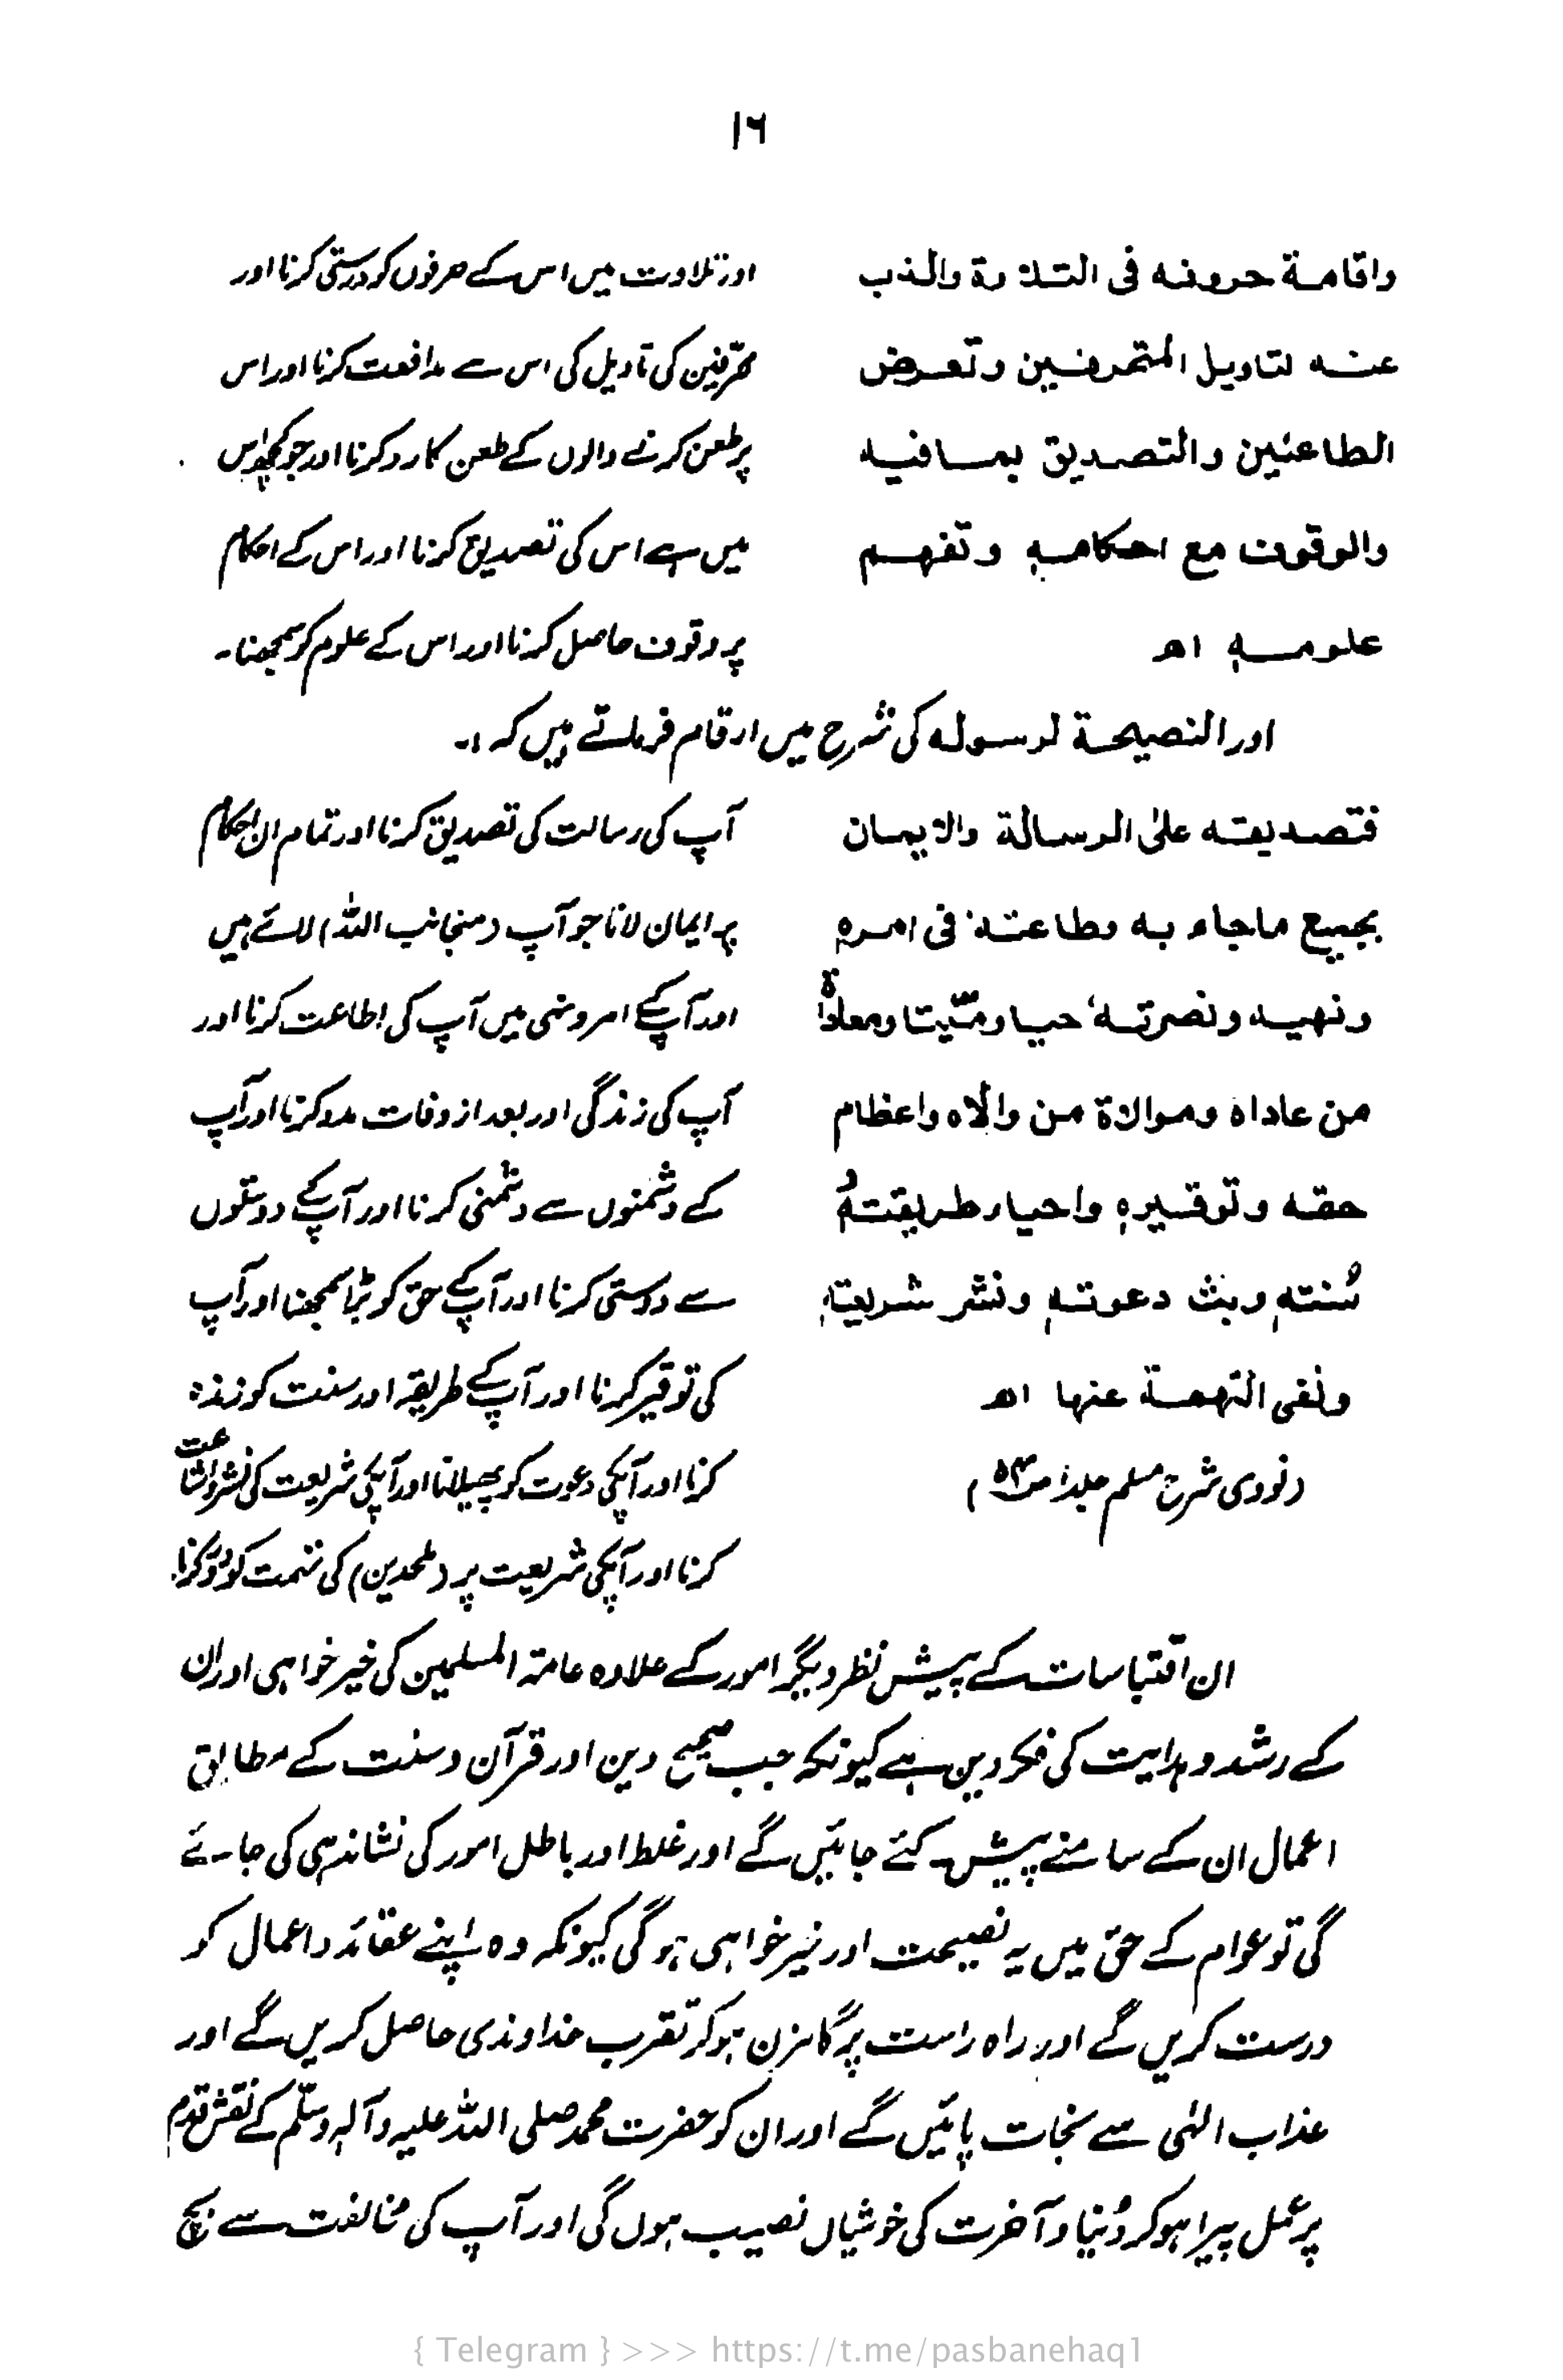 ۱۶
واقامة حروفه فى التلاوة والذب
عنه لتاويل المتحرفين وتعرض
الطاعنين والتصديق بما فيه
والوقوف مع احكامهٖ وتفهم
علومهٖ اھ
اور تلاوت میں اس کے حرفوں کو درستی کرنا اور
محرّفین کی تاویل کی اس سے مدافعت کرنا اور اس
پر طعن کرنے والوں کے طعن کا رد کرنا اور جو کچھ اس
میں ہے اس کی تصدیق کرنا اور اس کے احکام
پر وقوف حاصل کرنا اور اس کے علوم کو سمجھنا۔
اور النصيحة لرسوله کی شرح میں ارقام فرماتے ہیں کہ :۔
فتصديقه علىٰ الرسالة والايمان
بجميع ماجاء به وطاعتهٗ فى امرهٖ
ونهيه ونصرتهٗ حيا وميّتا ومعاداةً
من عاداه وموالاة من والاه واعظام
حقه وتوقيرهٖ واحياء طريقتهٗ و
سُنتهٖ وبث دعوتهٖ ونشر شريعتهٖ
ونفى التهمة عنها اھ
(نووی شرح مسلم جلد۱ ص۵۴)
آپ کی رسالت کی تصدیق کرنا اور تمام ان احکام
پر ایمان لانا جو آپ (منجانب اللہ) لائے ہیں
اور آپکے امر و نہی میں آپ کی اطاعت کرنا اور
آپ کی زندگی اور بعد از وفات مدد کرنا اور آپ
کے دشمنوں سے دشمنی کرنا اور آپکے دوستوں
سے دوستی کرنا اور آپکے حق کو بڑا سمجھنا اور آپ
کی توقیر کرنا اور آپکے طریقہ اور سنت کو زندہ
کرنا اور آپکی دعوت کو پھیلانا اور آپکی شریعت کی نشر و اشاعت
کرنا اور آپکی شریعت پر (ملحدین) کی تہمت کو دُور کرنا۔
ان اقتباسات کے پیشِ نظر دیگر امور کے علاوہ عامۃ المسلمین کی خیر خواہی اور ان
کے رشد و ہدایت کی فکر دین ہے کیونکہ جب صحیح دین اور قرآن و سنت کے مطابق
اعمال ان کے سامنے پیش کئے جائیں گے اور غلط اور باطل امور کی نشاندہی کی جائے
گی تو عوام کے حق میں یہ نصیحت اور خیر خواہی ہو گی کیونکہ وہ اپنے عقائد و اعمال کو
درست کریں گے اور راہ راست پر گامزن ہو کر تقرب خداوندی حاصل کریں گے اور
عذاب الٰہی سے نجات پائیں گے اور ان کو حضرت محمد صلی اللہ علیہ وآلہٖ وسلّم کے نقش قدم
پر عمل پیرا ہو کر دُنیا و آخرت کی خوشیاں نصیب ہوں گی اور آپ کی مخالفت سے بچ
{ Telegram } >>> https://t.me/pasbanehaq1